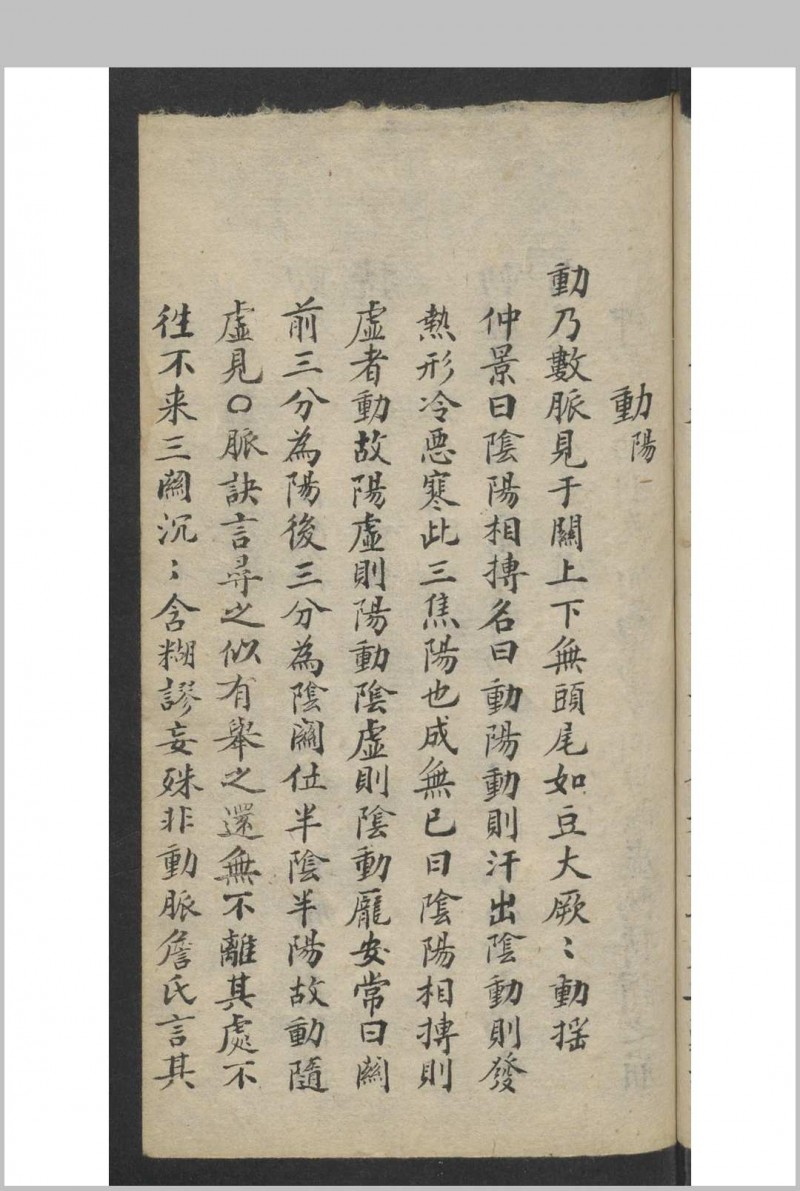 動陽
動乃數脈見于關上下無頭尾如豆大厥〻動揺
仲景曰陰陽相摶名曰動陽動則汗出陰動則發
熱形冷惡寒此三焦陽也成無已曰陰陽相摶則
虛者動故陽虛則陽動陰虛則陰動龎安常曰闗
前三分為陽後三分為陰闗位半陰半陽故動隨
虛見〇脈訣言尋之似有舉之還無不離其處不
徃不来三闗沉〻含糊謬妄殊非動脈詹氏言其